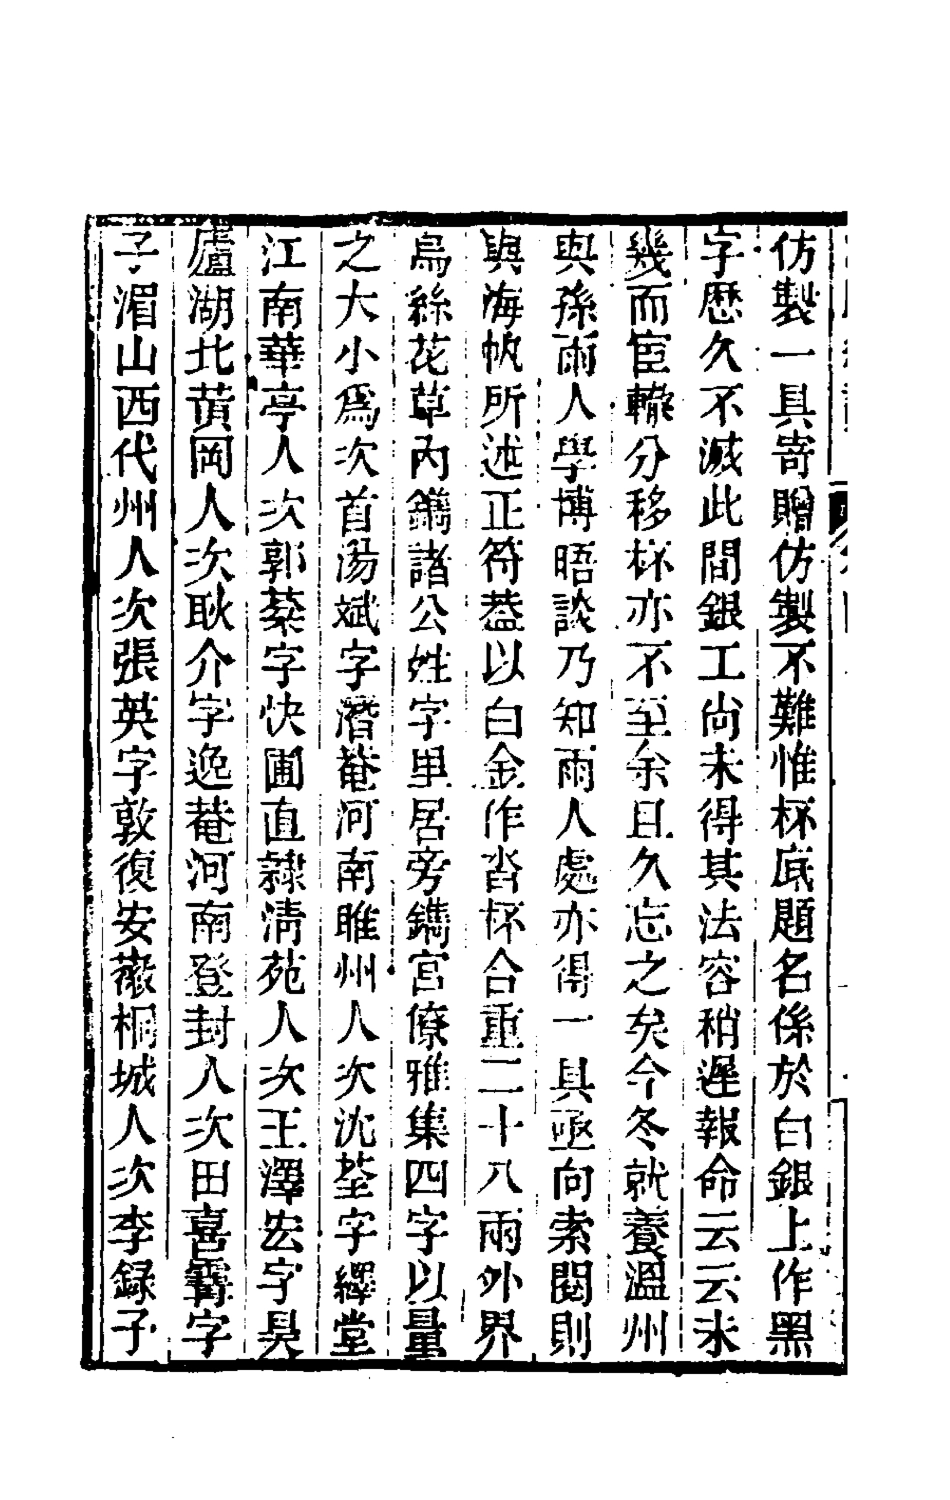 仿製一具寄贈仿製不難惟杯底題名係於白銀上作黑
字歷久不滅此間銀工尚未得其法容稍遲報命云云未
幾而宦轍分移杯亦不至余日久忘之矣今冬就養溫州
與孫雨人學博晤談乃知雨人處亦得一具亟向索閱則
與海帆所述正符葢以白金作沓杯合重二十八兩外界
烏絲花草內鐫諸公姓字里居旁鐫宮僚雅集四字以量
之大小爲次首湯斌字潛菴河南睢州人次沈荃字繹堂
江南華亭人次郭棻字快圃直隸淸苑人次王澤宏字昊
廬湖北黃岡人次耿介字逸菴河南登封人次田喜𩆩字
子湄山西代州人次張英字敦復安徽桐城人次李錄子